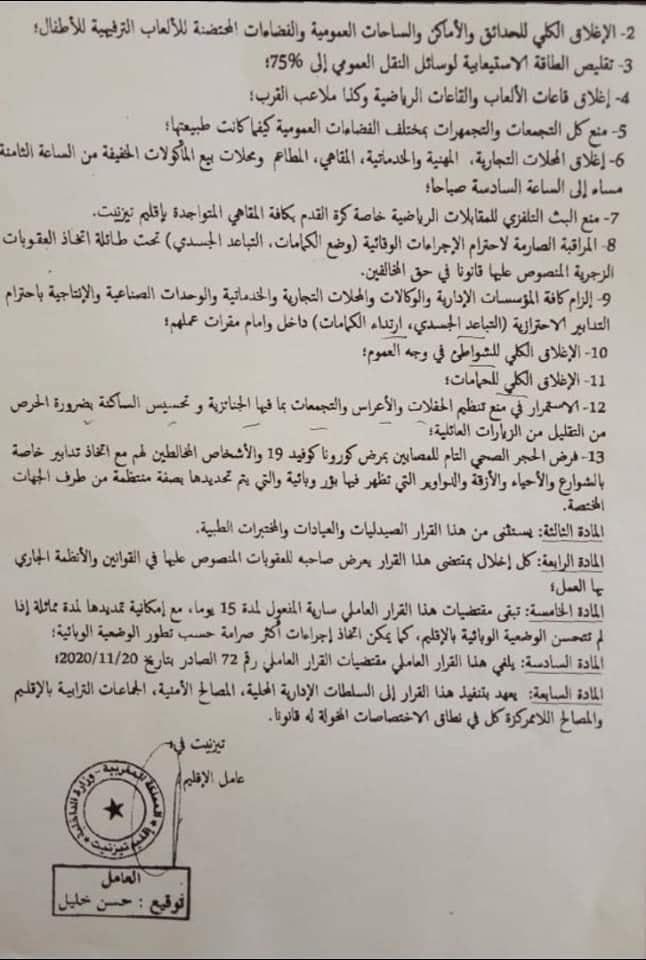 2- الإغلاق الكلي للحدائق والأماكن والساحات العمومية والفضاءات المحتضنة للألعاب الترفيهية للأطفال؛
3- تقليص الطاقة الاستيعابية لوسائل النقل العمومي إلى 75%؛
4- إغلاق قاعات الألعاب والقاعات الرياضية وكذا ملاعب القرب؛
5- منع كل التجمعات والتجمهرات بمختلف الفضاءات العمومية كيفما كانت طبيعتها؛
6- إغلاق المحلات التجارية، المهنية والخدماتية، المقاهي، المطاعم ومحلات بيع المأكولات الخفيفة من الساعة الثامنة
مساء إلى الساعة السادسة صباحا؛
7- منع البث التلفزي للمقابلات الرياضية خاصة كرة القدم بكافة المقاهي المتواجدة بإقليم تيزنيت.
8- المراقبة الصارمة لاحترام الإجراءات الوقائية (وضع الكمامات، التباعد الجسدي) تحت طائلة اتخاذ العقوبات
الزجرية المنصوص عليها قانونا في حق المخالفين.
9- إلزام كافة المؤسسات الإدارية والوكالات والمحلات التجارية والخدماتية والوحدات الصناعية والإنتاجية باحترام
التدابير الاحترازية (التباعد الجسدي، ارتداء الكمامات) داخل وامام مقرات عملهم؛
10- الإغلاق الكلي للشواطئ في وجه العموم؛
11- الإغلاق الكلي للحمامات؛
12- الاستمرار في منع تنظيم الحفلات والأعراس والتجمعات بما فيها الجنائزية و تحسيس الساكنة بضرورة الحرص
من التقليل من الزيارات العائلية؛
13- فرض الحجر الصحي التام للمصابين بمرض كورونا كوفيد 19 والأشخاص المخالطين لهم مع اتخاذ تدابير خاصة
بالشوارع والأحياء والأزقة والدواوير التي تظهر فيها بؤر وبائية والتي يتم تحديدها بصفة منتظمة من طرف الجهات
المختصة.
المادة الثالثة: يستثنى من هذا القرار الصيدليات والعيادات والمختبرات الطبية.
المادة الرابعة: كل إخلال بمقتضى هذا القرار يعرض صاحبه للعقوبات المنصوص عليها في القوانين والأنظمة الجاري
بها العمل؛
المادة الخامسة: تبقى مقتضيات هذا القرار العاملي سارية المفعول لمدة 15 يوما، مع إمكانية تمديدها لمدة مماثلة إذا
لم تتحسن الوضعية الوبائية بالإقليم، كما يمكن اتخاذ إجراءات أكثر صرامة حسب تطور الوضعية الوبائية؛
المادة السادسة: يلغي هذا القرار العاملي مقتضيات القرار العاملي رقم 72 الصادر بتاريخ 2020/11/20؛
المادة السابعة: يعهد بتنفيذ هذا القرار إلى السلطات الإدارية المحلية، المصالح الأمنية، الجماعات الترابية بالإقليم
والمصالح اللاممركزة كل في نطاق الاختصاصات المخولة له قانونا.
تيزنيت في:
عامل الإقليم
المملكة المغربية - وزارة الداخلية
إقليم تيزنيت
العامل
توقيع : حسن خليل